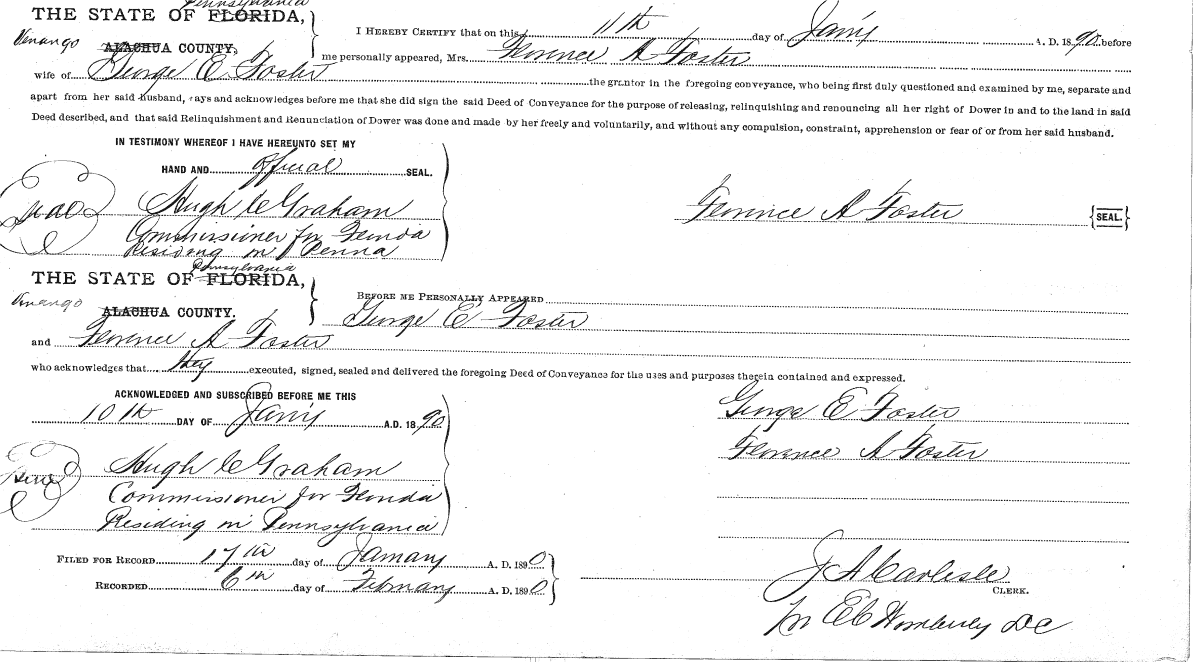 Pennsylvania
THE STATE OF FLORIDA,
Venango ALACHUA COUNTY,
I HEREBY CERTIFY that on this 11th day of Jany A. D. 1890 before
me personally appeared, Mrs. Florence A Foster
wife of George E. Foster the grantor in the foregoing conveyance, who being first duly questioned and examined by me, separate and
apart from her said husband, says and acknowledges before me that she did sign the said Deed of Conveyance for the purpose of releasing, relinquishing and renouncing all her right of Dower in and to the land in said
Deed described, and that said Relinquishment and Renunciation of Dower was done and made by her freely and voluntarily, and without any compulsion, constraint, apprehension or fear of or from her said husband.
IN TESTIMONY WHEREOF I HAVE HEREUNTO SET MY
HAND AND official SEAL.
Seal Hugh C Graham
Commissioner for Florida
Residing in Penna
Florence A Foster {SEAL.}
Pennsylvania
THE STATE OF FLORIDA,
Venango ALACHUA COUNTY.
BEFORE ME PERSONALLY APPEARED
George E Foster
and Florence A Foster
who acknowledges that they executed, signed, sealed and delivered the foregoing Deed of Conveyance for the uses and purposes therein contained and expressed.
ACKNOWLEDGED AND SUBSCRIBED BEFORE ME THIS
10th DAY OF Jany A.D. 1890
George E Foster
Florence A Foster
Hugh C Graham
Commissioner for Florida
Residing in Pennsylvania
FILED FOR RECORD 17th day of January A. D. 1890
RECORDED 6th day of February A. D. 1890
J A Carlisle
CLERK.
DC